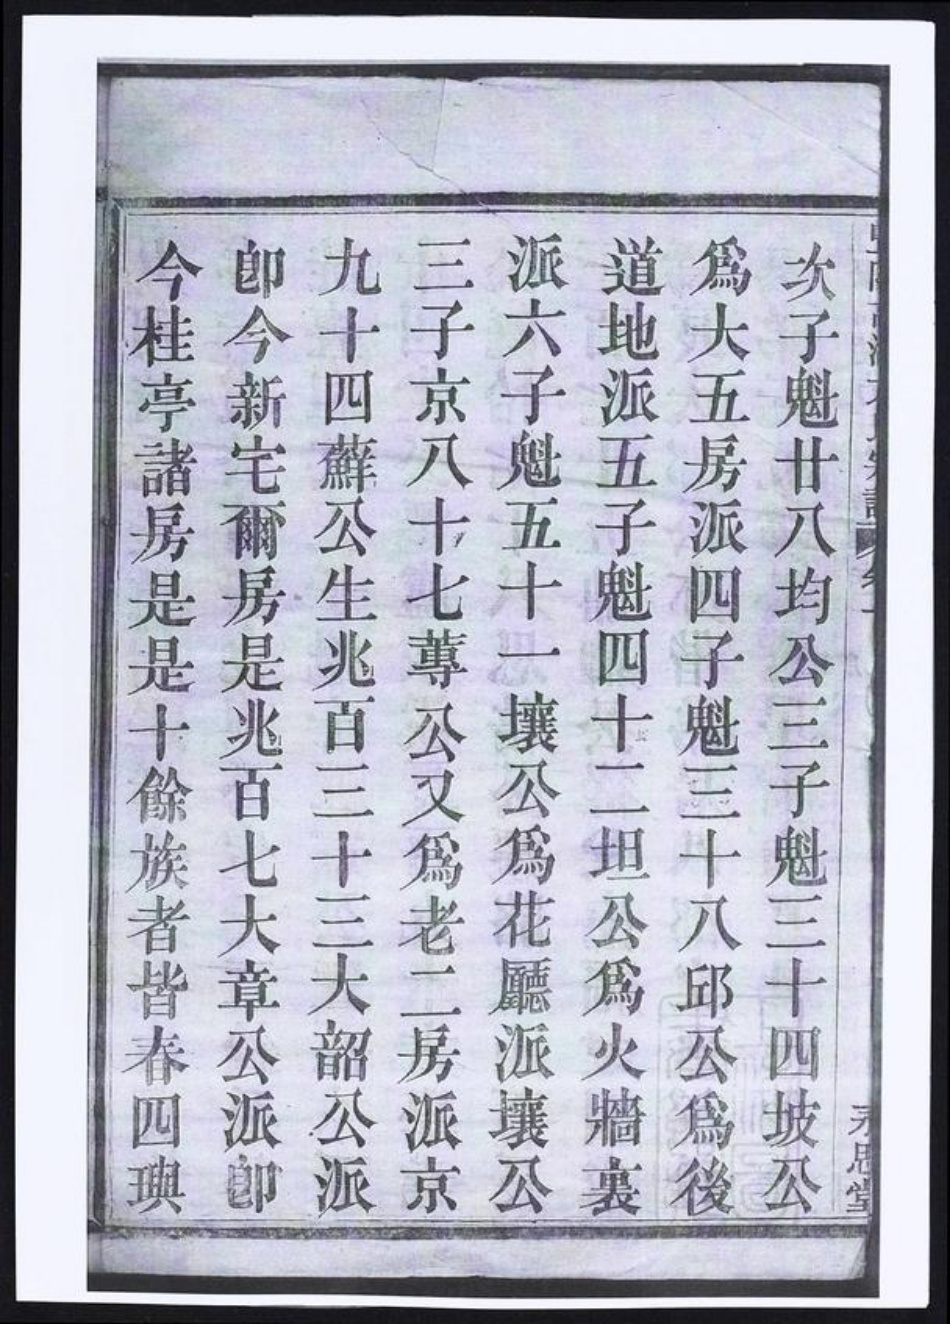 次子魁廿八均公三子魁三十四坡公
爲大五房派四子魁三十八邱公爲後
道地派五子魁四十二坦公爲火牆裏
派六子魁五十一壤公爲花廳派壤公
三子京八十七蓴公又爲老二房派京
九十四蘇公生兆百三十三大韶公派
卽今新宅爾房是兆百七大章公派卽
今桂亭諸房是是十餘族者皆春四㻛
永思堂